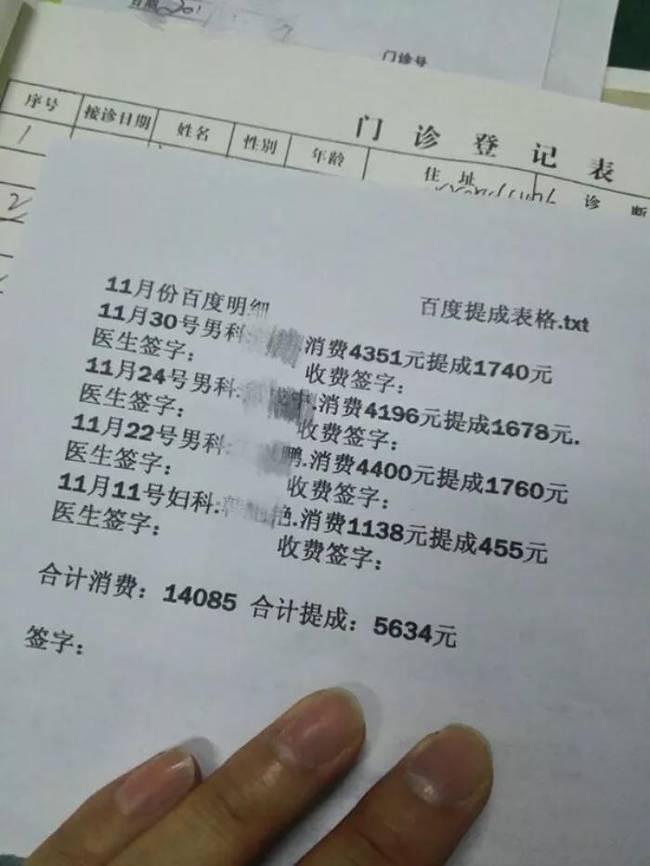 门诊号
门诊登记表
序号 接诊日期 姓名 性别 年龄 住址 诊断
1
2
百度提成表格.txt
11月份百度明细
11月30号男科 消费4351元提成1740元
医生签字: 收费签字:
11月24号男科. .消费4196元提成1678元.
医生签字: 收费签字:
11月22号男科: 鹏.消费4400元提成1760元
医生签字: 收费签字:
11月11号妇科: 艳.消费1138元提成455元
医生签字: 收费签字:
合计消费：14085 合计提成：5634元
签字: